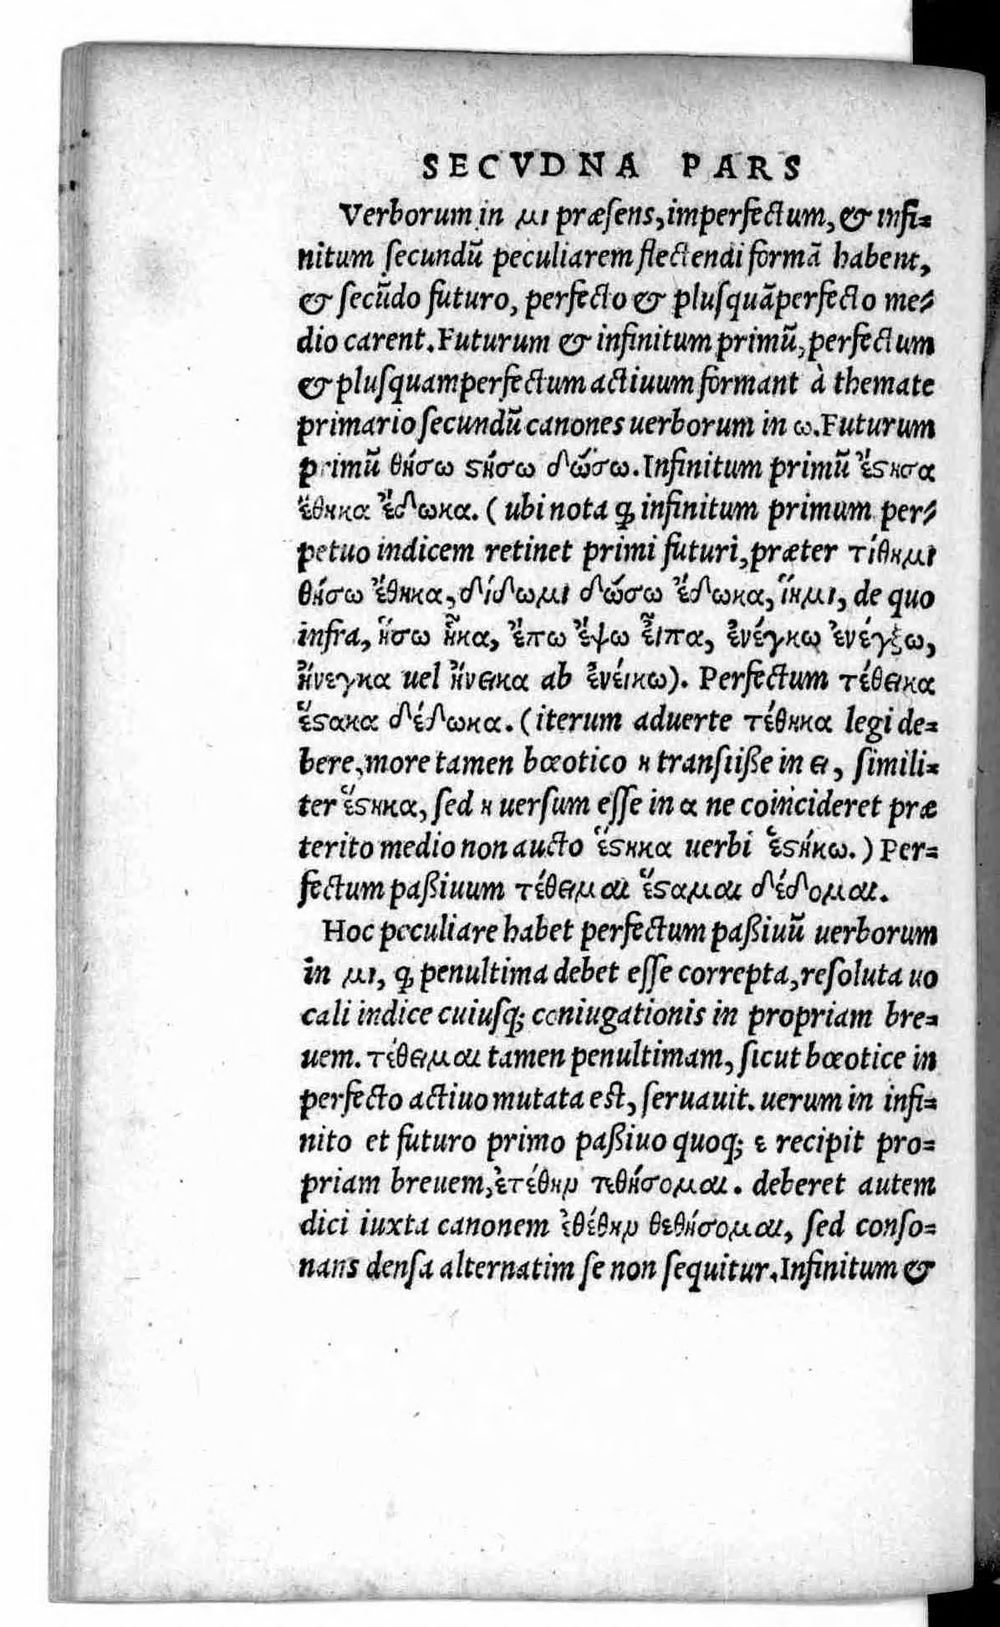 SECVDNA PARS
Verborum in μι præsens, imperfectum, & infi=
nitum secundũ peculiarem flectendi formã habent,
& secũdo futuro, perfecto & plusquãperfecto me=
dio carent. Futurum & infinitum primũ, perfectum
& plusquamperfectum actiuum formant à themate
primario secundũ canones uerborum in ω. Futurum
primũ θήσω ϛήσω δώσω. Infinitum primũ ἔϛησα
ἔθηκα ἔδωκα. ( ubi nota ꝙ infinitum primum per=
petuo indicem retinet primi futuri, præter τίθημι
θήσω ἔθηκα, δίδωμι δώσω ἔδωκα, ἵημι, de quo
infra, ἥσω ἧκα, ἔπω ἔψω εἶπα, ἐνέγκω ἐνέγξω,
ἤνεγκα uel ἤνεικα ab ἐνείκω). Perfectum τέθεικα
ἕϛακα δέδωκα. (iterum aduerte τέθηκα legi de=
bere, more tamen bœotico η transiiße in ει, simili=
ter ἕϛηκα, sed η uersum esse in α ne coincideret præ
terito medio non aucto ἕϛηκα uerbi ἑϛήκω. ) Per=
fectum paßiuum τέθειμαι ἕϛαμαι δέδομαι.
Hoc peculiare habet perfectum paßiuũ uerborum
in μι, ꝙ penultima debet esse correpta, resoluta uo
cali indice cuiusq; coniugationis in propriam bre=
uem. τέθειμαι tamen penultimam, sicut bœotice in
perfecto actiuo mutata est, seruauit. uerum in infi=
nito et futuro primo paßiuo quoq; ε recipit pro=
priam breuem, ἐτέθην τεθήσομαι. deberet autem
dici iuxta canonem ἐθέθην θεθήσομαι, sed conso=
nans densa alternatim se non sequitur. Infinitum &